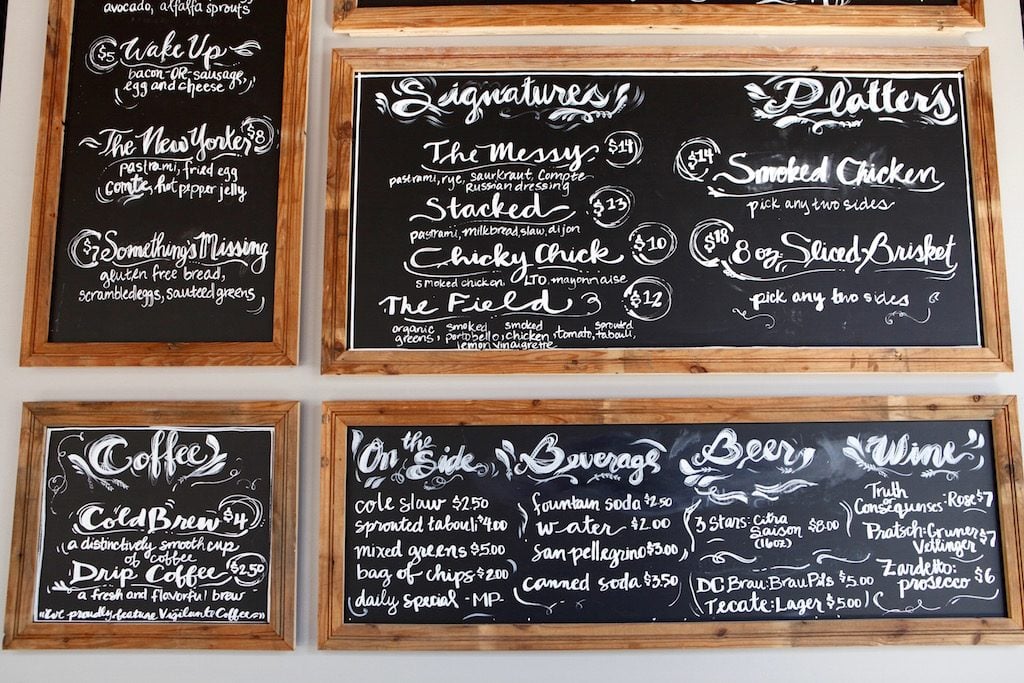 avocado, alfalfa sprouts
$5 Wake Up
bacon-OR-sausage,
egg and cheese
The New Yorker $8
pastrami, fried egg
comte, hot pepper jelly
$7 Something's Missing
gluten free bread,
scrambled eggs, sauteed greens
Signatures
The Messy $14
pastrami, rye, saurkraut, Compte
Russian dressing
Stacked $13
pastrami, milkbread, slaw, dijon
Chicky Chick $10
smoked chicken, LTO, mayonnaise
The Field $12
organic greens, smoked portobello, smoked chicken, tomato, sprouted tabouli,
lemon vinaigrette
Platters
$14 Smoked Chicken
pick any two sides
$18 8 oz. Sliced Brisket
pick any two sides
Coffee
Cold Brew $4
a distinctively smooth cup
of coffee
Drip Coffee $2.50
a fresh and flavorful brew
we proudly feature Vigilante Coffee
On the Side
cole slaw $2.50
sprouted tabouli $4.00
mixed greens $5.00
bag of chips $2.00
daily special - MP.
Beverage
fountain soda $2.50
water $2.00
san pellegrino $3.00
canned soda $3.50
Beer
3 Stars: Citra
Saison $8.00
(16oz)
DC Brau: Brau Pils $5.00
Tecate: Lager $5.00
Wine
Truth
or
Consequenses: Rose $7
Pratsch: Gruner $7
Veltlinger
Zardetto:
prosecco $6